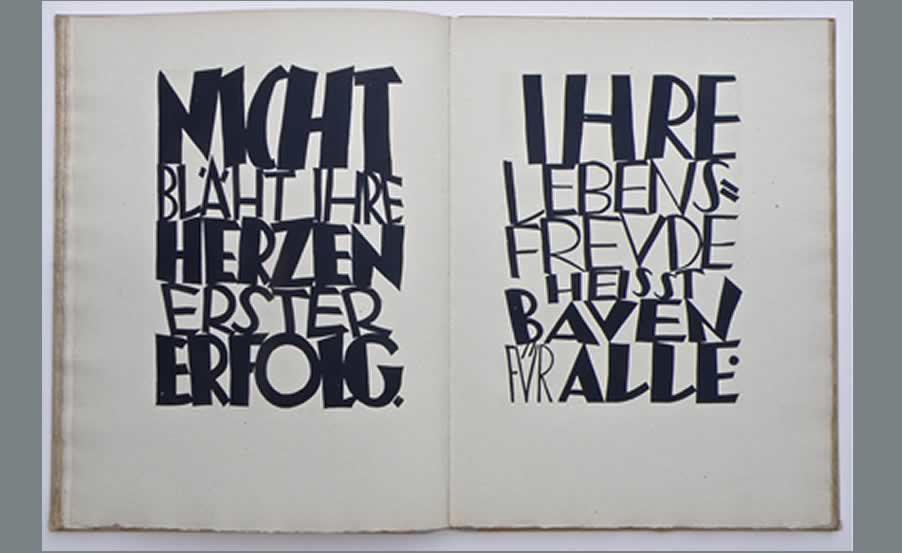 NICHT
BLÄHT IHRE
HERZEN
ERSTER
ERFOLG.
IHRE
LEBENS=
FREVDE
HEISST
BAVEN
FÜR ALLE.